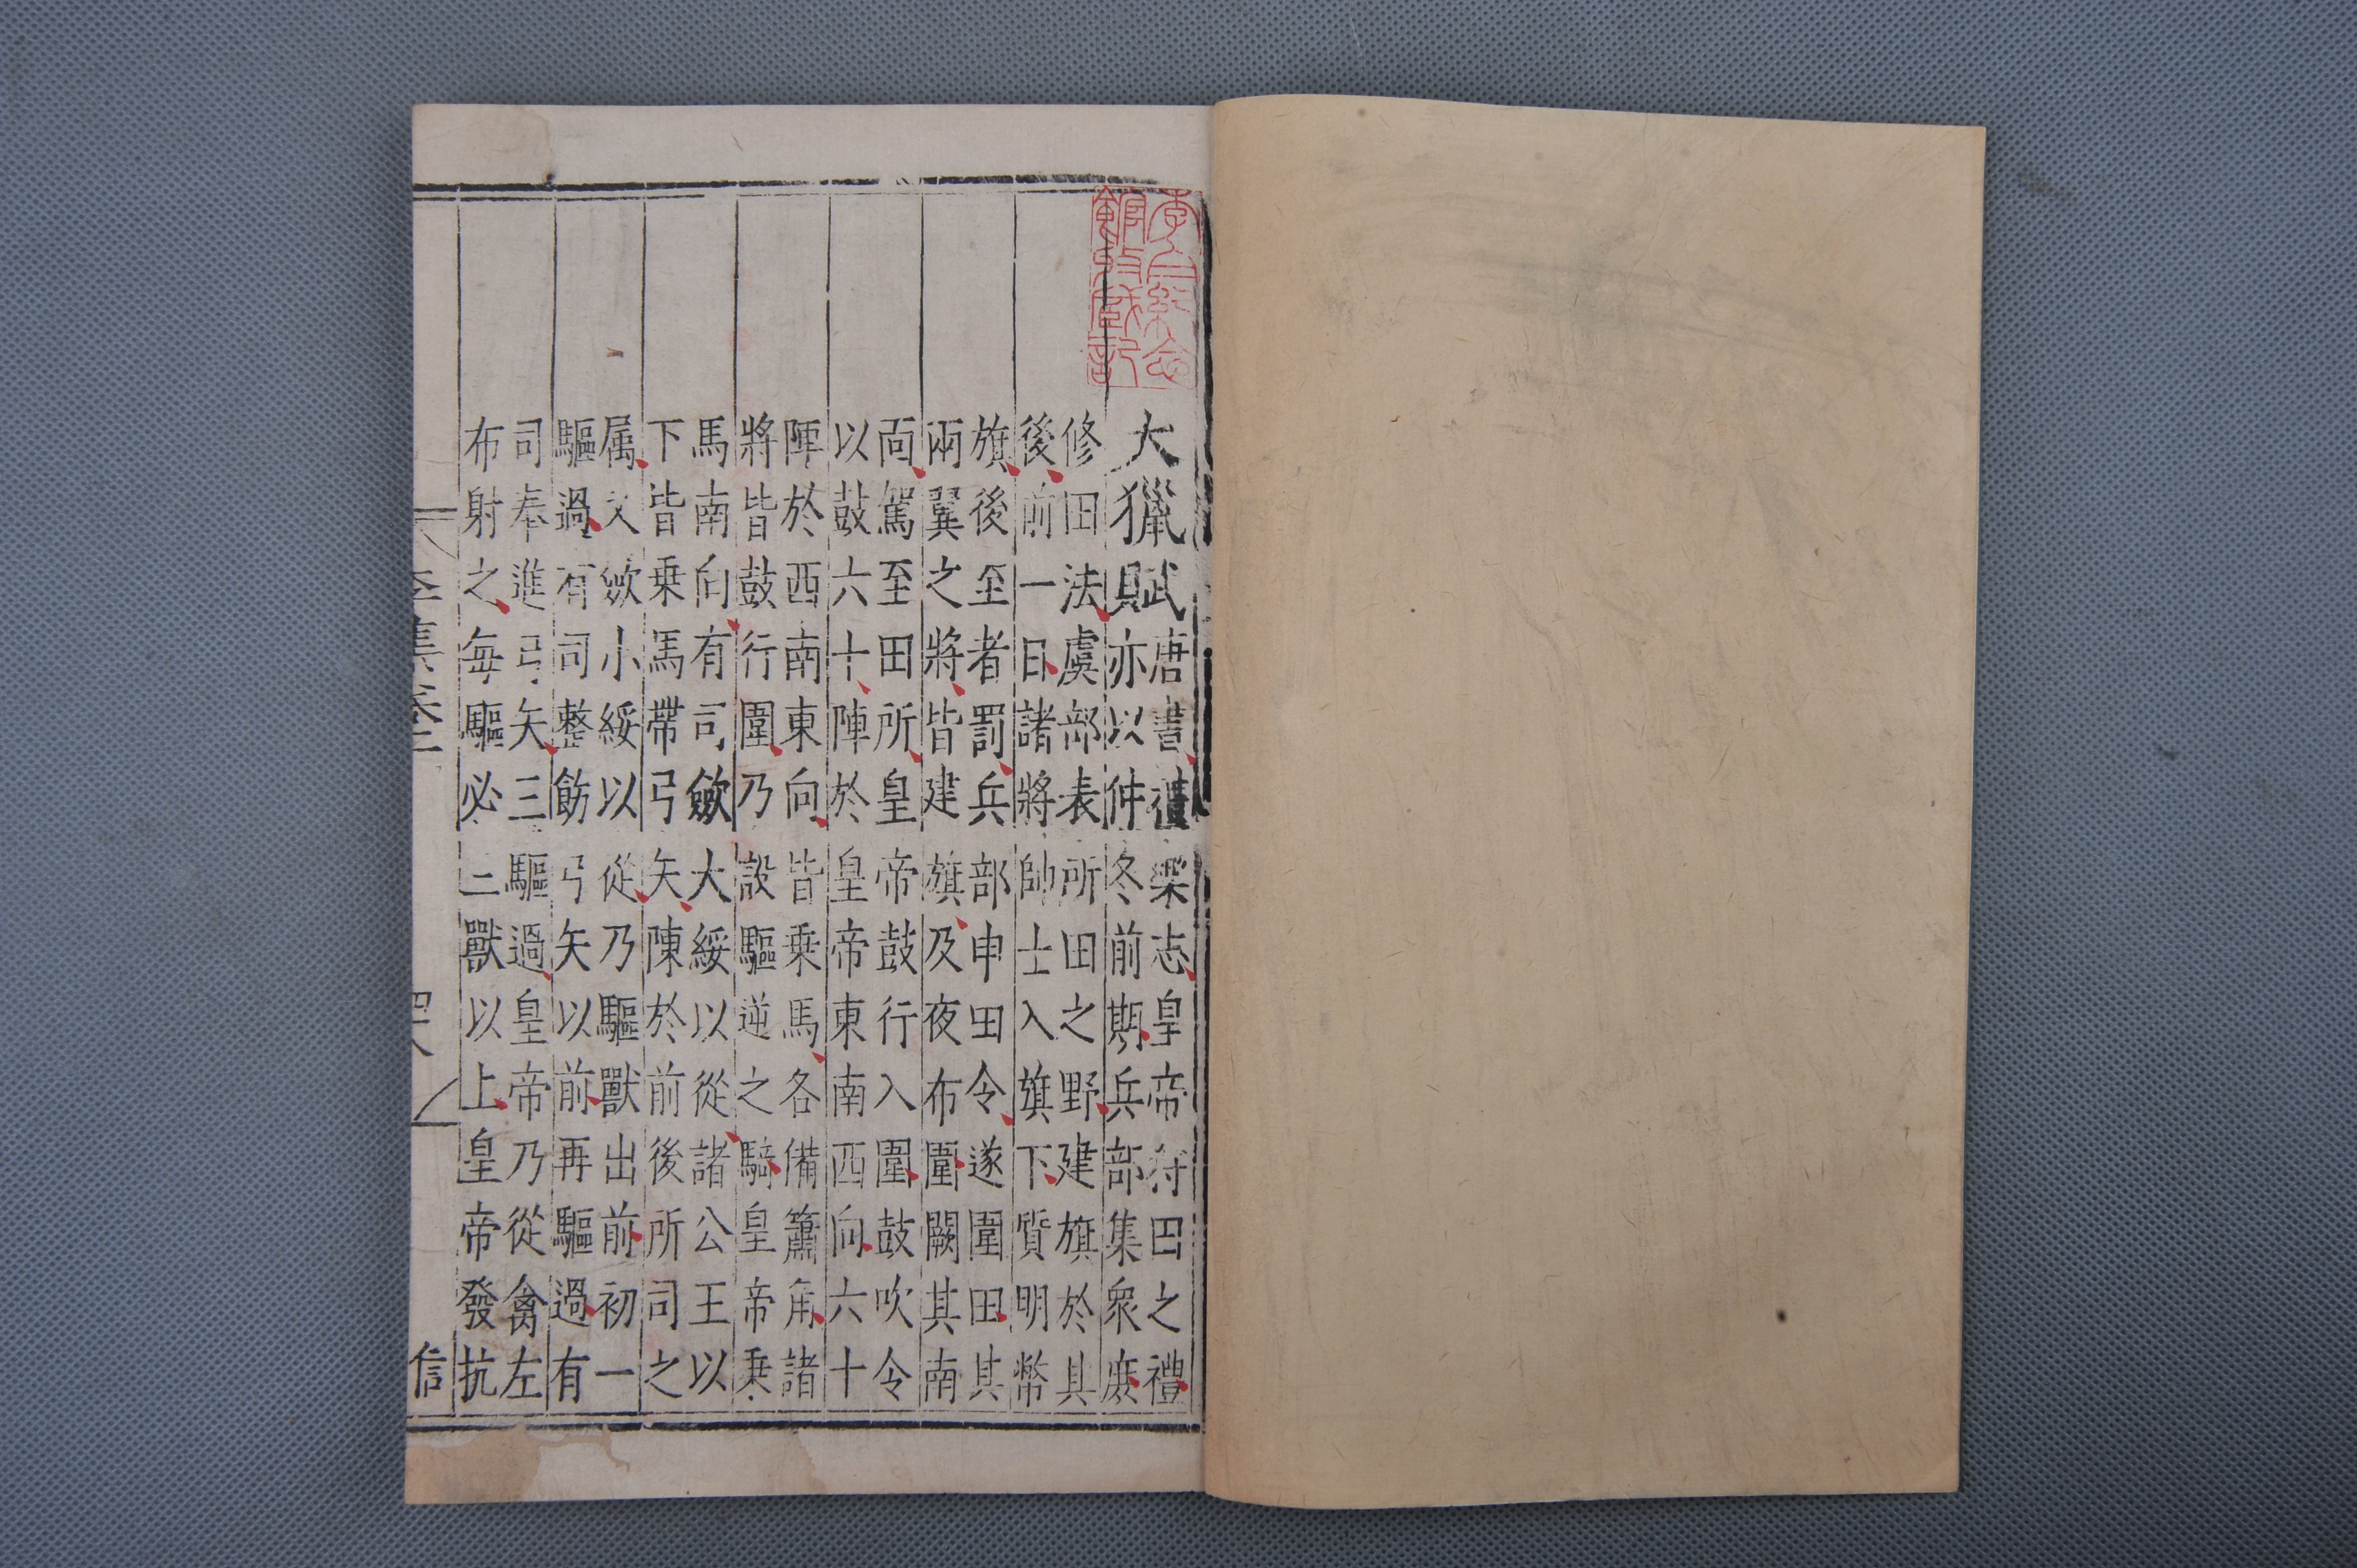 李白紀念
館收藏記
大獵賦
唐書禮樂志皇帝狩田之禮
亦以仲冬前期兵部集衆庶
修田法虞部表所田之野建旗於其
後前一日諸將帥士入旗下質明幣
旗後至者罰兵部申田令遂圍田其
兩翼之將皆建旗及夜布圍闕其南
靣駕至田所皇帝鼓行入圍鼓吹令
以鼓六十陣於皇帝東南西向六十
陣於西南東向皆乗馬各備簫角諸
將皆鼓行圍乃設驅逆之騎皇帝乗
馬南向有司斂大綏以從諸公王以
下皆乗馬帶弓矢陳於前後所司之
属又斂小綏以從乃驅獸出前初一
驅過有司整飭弓矢以前再驅過有
司奉進弓矢三驅過皇帝乃從禽左
布射之每驅必三獸以上皇帝發抗
李集卷二
四八
信